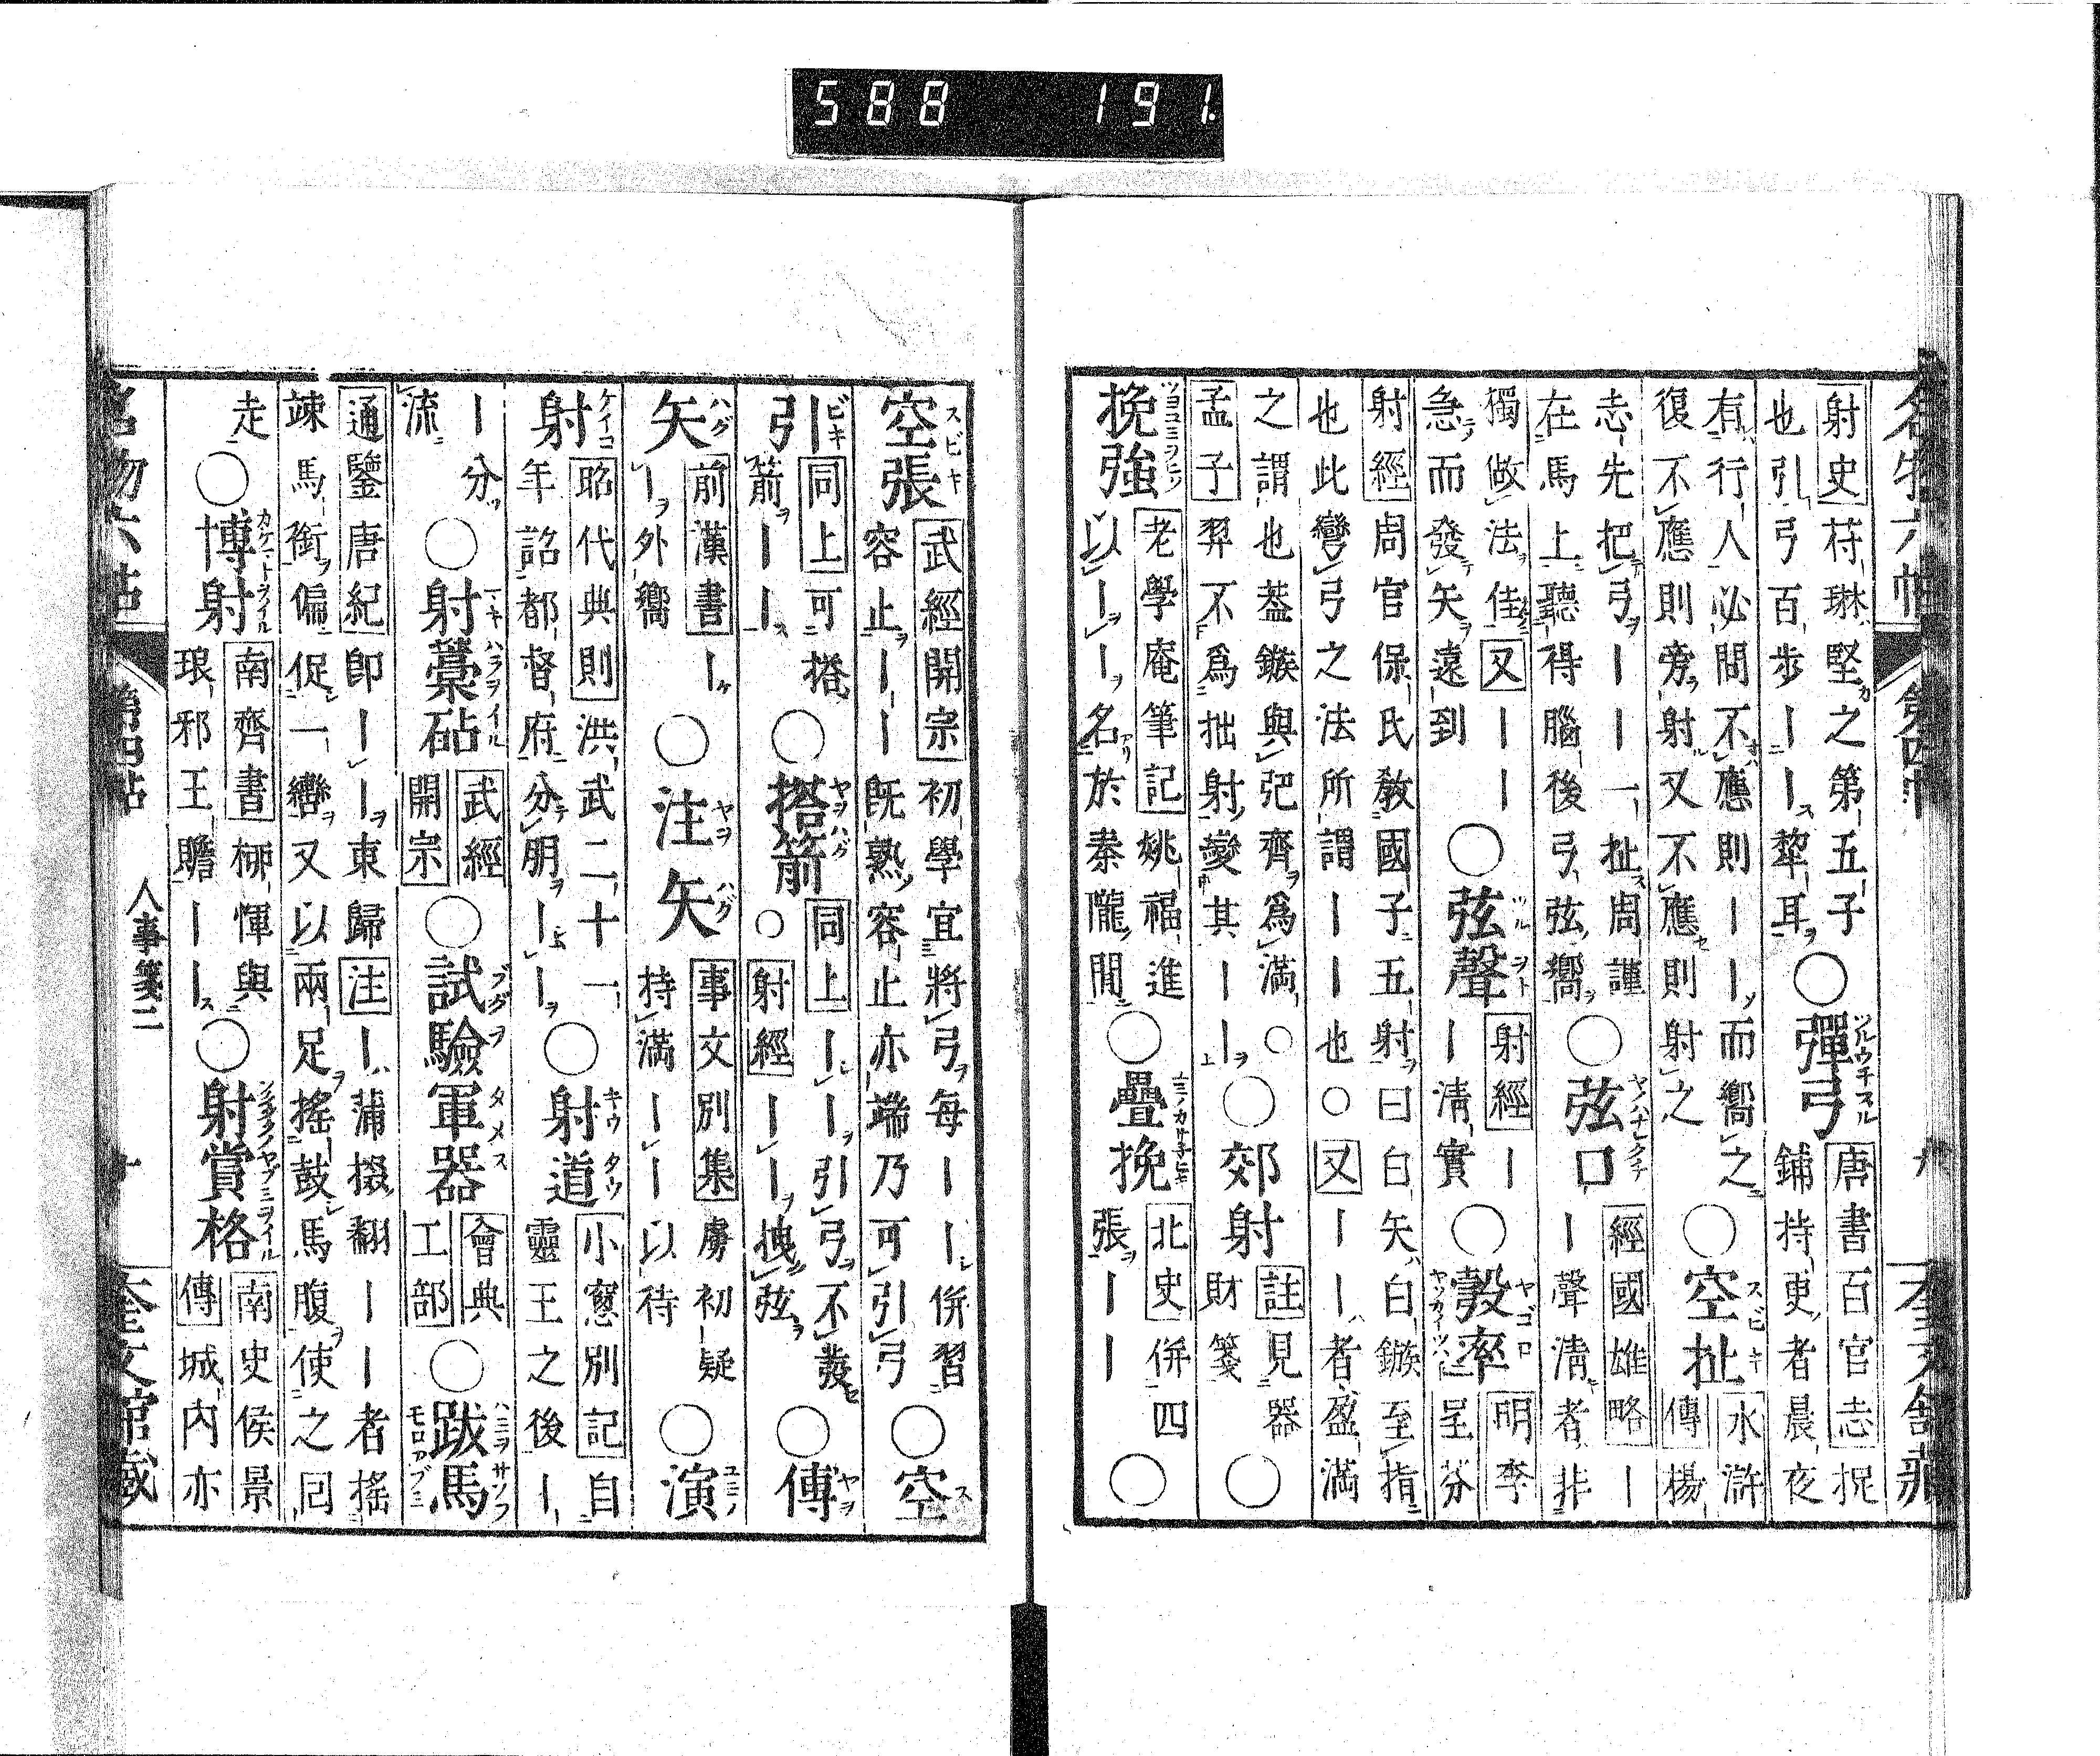 588 191
射史苻琳堅之第五子
也引弓百步ーー犂耳○彈弓唐書百官志捉
鋪持更者晨夜
有行人必問不應則ーー而嚮之
復不應則旁射又不應則射之○空扯水滸
傳楊
志先把弓ーー一扯周謹
在馬上聽得腦後弓弦嚮○弦口經國雄略ー
ー聲清者非
獨做法佳又ーー
急而發矢遠到○弦聲射經ー
ー清實○彀率明李
呈芬
射經周官保氏教國子五射曰白矢白鏃至指
也此彎弓之法所謂ーー也○又ーー者盈滿
之謂也蓋鏃與弝齊爲滿○
孟子羿不爲拙射變其ーー○郊射註見器
財箋○
挽強老學庵筆記姚福進
以ーー名於秦隴間○疊挽北史併四
張ーー○
空張武經開宗初學宜將弓每ーー併習
容止ーー既熟容止亦端乃可引弓○空
引同上可搭
箭ーー○搭箭○同上ーー引弓不發
射經ーー拽弦○傅
矢前漢書ー
ー外嚮○注矢事文別集虜初疑
持滿ーー以待○演
射昭代典則洪武二十一
年詔都督府分明ーー○射道小窓別記自
靈王之後ー
ー分
流○射藁砧武經
開宗○試驗軍器會典
工部○跋馬
通鑒唐紀卽ーー東歸注ー蒲撥翻ーー者搖
竦馬銜偏促一轡又以兩足搖鼓馬腹使之回
走○博射南齊書柳惲與
琅邪王瞻ーー○射賞格南史侯景
傳城內亦
人事箋二